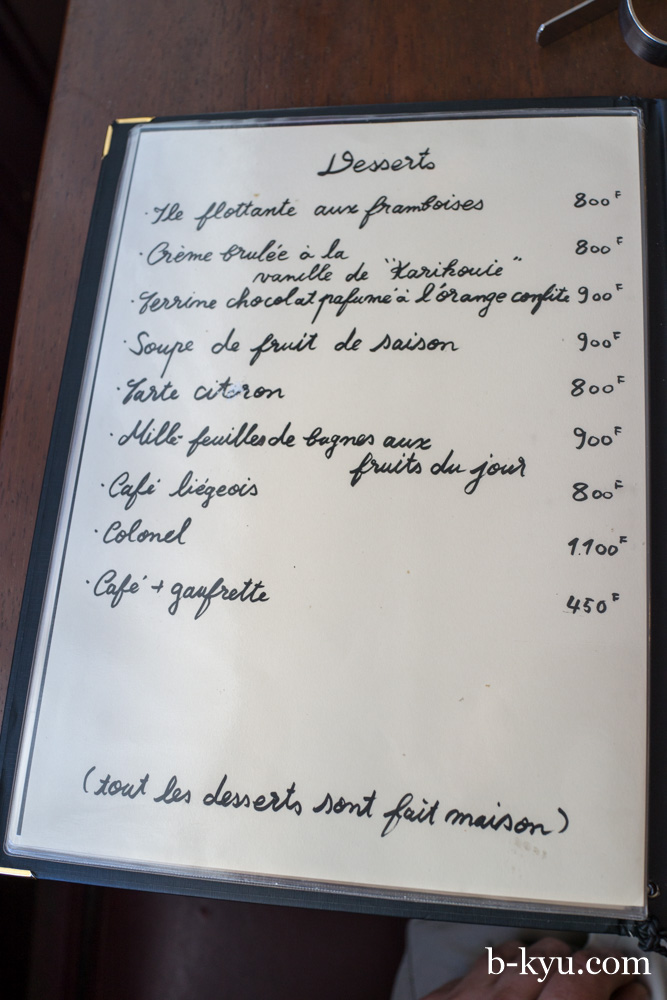 Desserts
· Ile flottante aux framboises 800 F
· Crème brulée à la 800 F
vanille de "Xarikouie"
· Terrine chocolat pafumé à l'orange confite 900 F
· Soupe de fruit de saison 900 F
· Tarte citron 800 F
· Mille-feuilles de bugnes aux 900 F
fruits du jour
· Café liégeois 800 F
· Colonel 1.100 F
· Café + gaufrette 450 F
(tout les desserts sont fait maison)
b-kyu.com